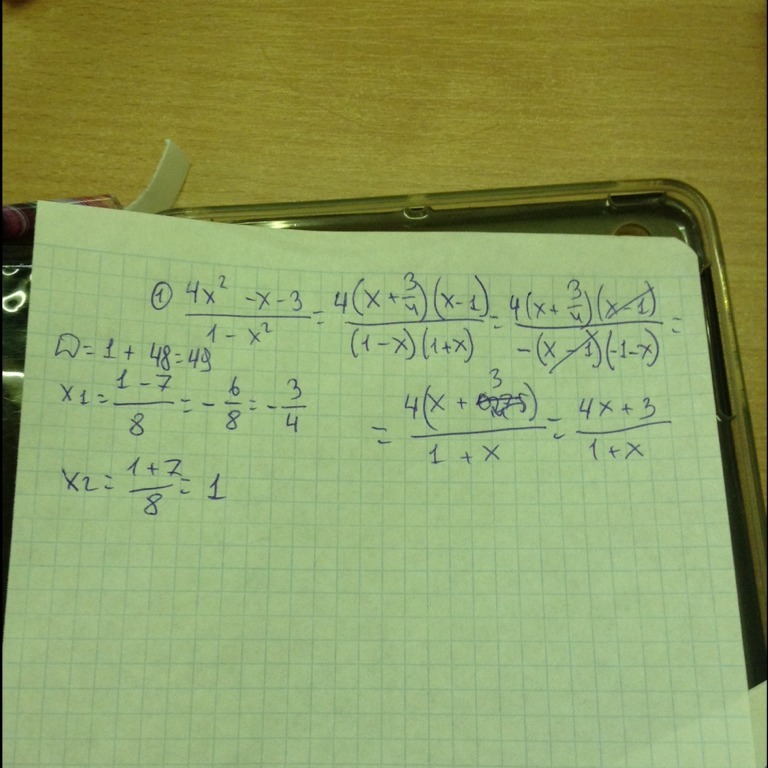 ① (4x² - x - 3)/(1 - x²) = 4(x + 3/4)(x - 1)/((1 - x)(1 + x)) = 4(x + 3/4)(x - 1)/(-(x - 1)(-1 - x)) =
D = 1 + 48 = 49
x1 = (1 - 7)/8 = - 6/8 = - 3/4
= 4(x + 3/4)/(1 + x) = (4x + 3)/(1 + x)
x2 = (1 + 7)/8 = 1